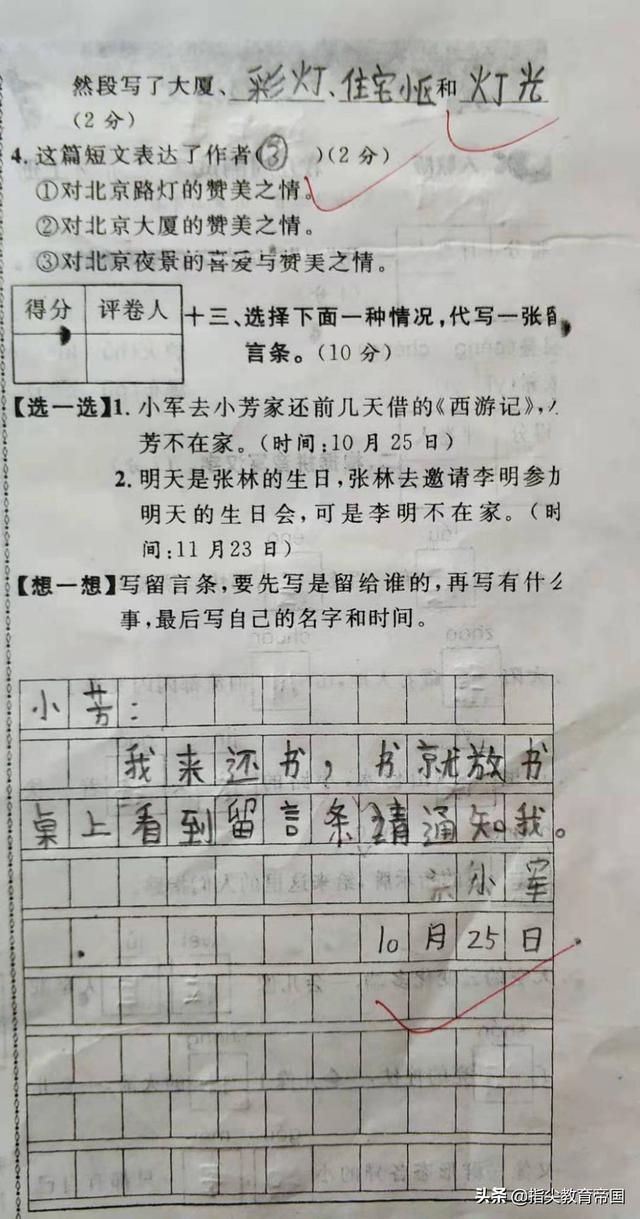 然段写了大厦、彩灯、住宅小区和灯光
(2分)
4.这篇短文表达了作者(③ )(2分)
①对北京路灯的赞美之情。
②对北京大厦的赞美之情。
③对北京夜景的喜爱与赞美之情。
得分 评卷人
十三、选择下面一种情况,代写一张留
言条。(10分)
【选一选】1. 小军去小芳家还前几天借的《西游记》,
芳不在家。(时间:10月25日)
2. 明天是张林的生日,张林去邀请李明参加
明天的生日会,可是李明不在家。(时
间:11月23日)
【想一想】写留言条,要先写是留给谁的,再写有什么
事,最后写自己的名字和时间。
小芳:
我来还书,书就放书
桌上看到留言条请通知我。
小军
10月25日
头条 @指尖教育帝国